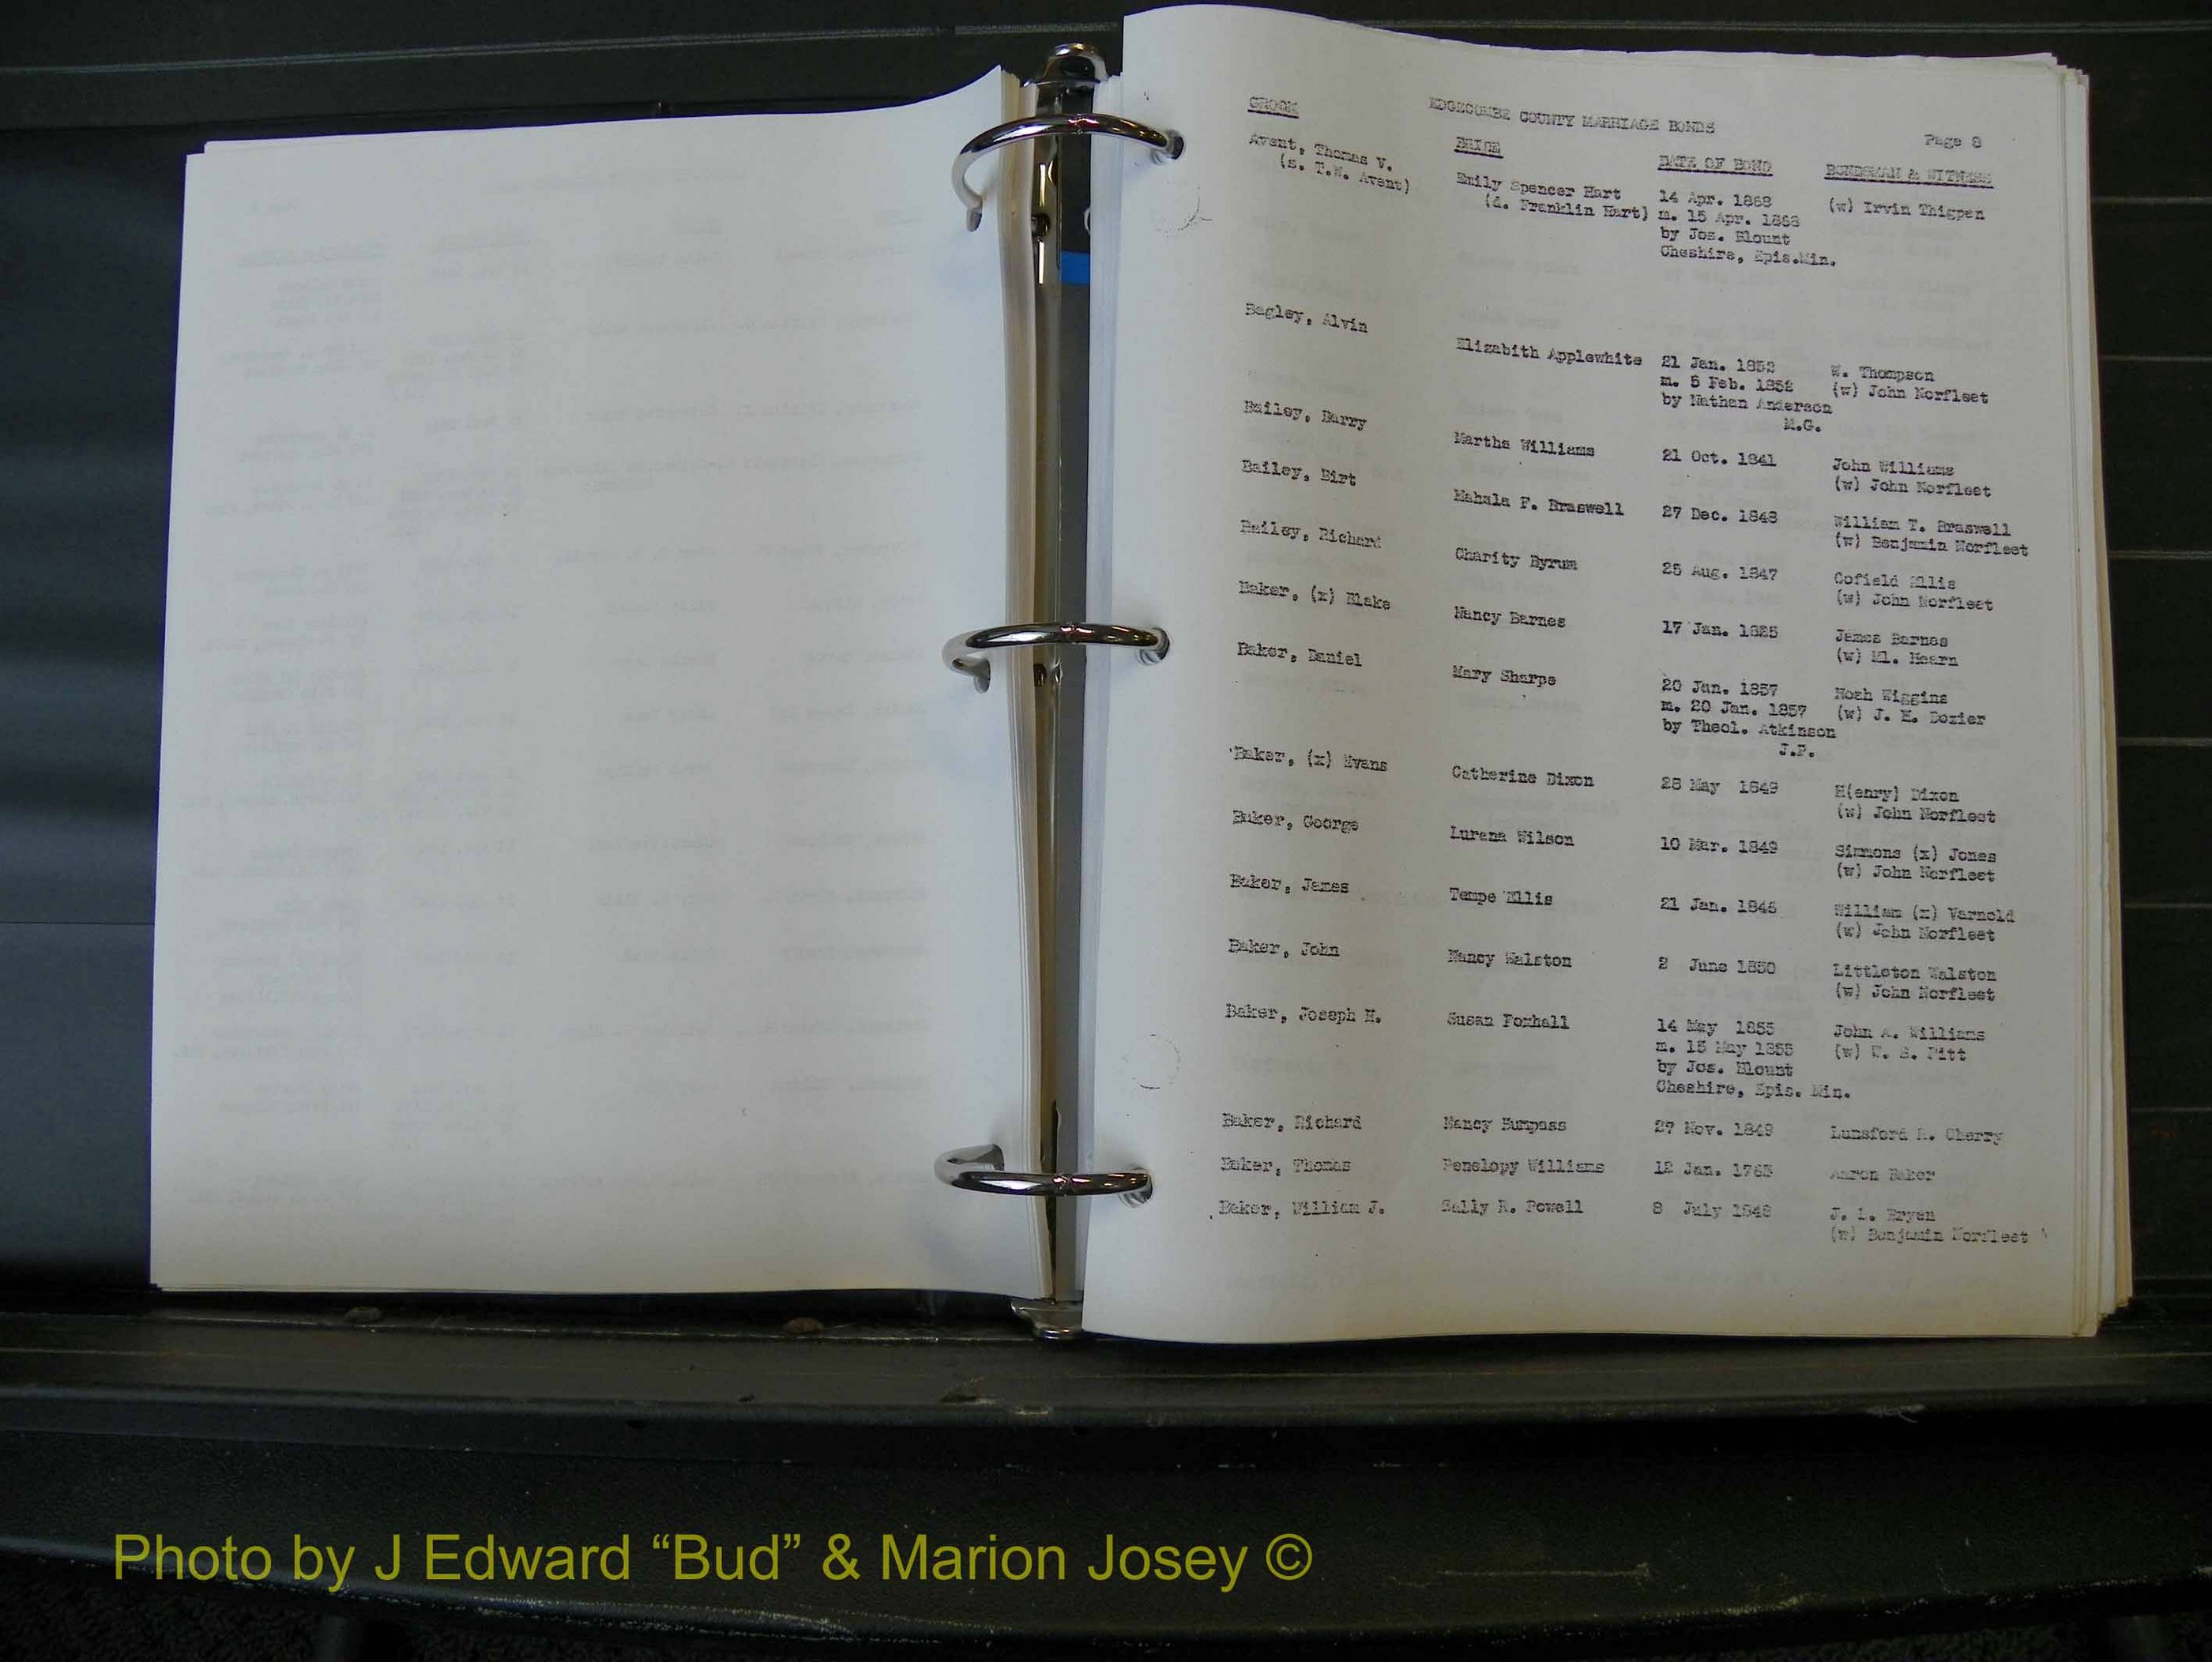 EDGECOMBE COUNTY MARRIAGE BONDS
Page 8
GROOM BRIDE DATE OF BOND BONDSMAN & WITNESS
Avent, Thomas V. Emily Spencer Hart 14 Apr. 1868 (w) Irvin Thigpen
(s. T.W. Avent) (d. Franklin Hart) m. 15 Apr. 1868
by Jos. Blount
Cheshire, Epis.Min.
Bagley, Alvin Elizabith Applewhite 21 Jan. 1852 W. Thompson
m. 5 Feb. 1852 (w) John Norfleet
by Nathan Anderson
M.G.
Bailey, Barry Martha Williams 21 Oct. 1841 John Williams
(w) John Norfleet
Bailey, Birt Mahala F. Braswell 27 Dec. 1848 William T. Braswell
(w) Benjamin Norfleet
Bailey, Richard Charity Byrum 25 Aug. 1847 Cofield Ellis
(w) John Norfleet
Baker, (x) Blake Nancy Barnes 17 Jan. 1825 James Barnes
(w) Ml. Hearn
Baker, Daniel Mary Sharpe 20 Jan. 1857 Noah Wiggins
m. 20 Jan. 1857 (w) J. H. Dozier
by Theol. Atkinson
J.P.
Baker, (x) Evans Catherine Dixon 28 May 1849 H(enry) Dixon
(w) John Norfleet
Baker, George Lurana Wilson 10 Mar. 1849 Simmons (x) Jones
(w) John Norfleet
Baker, James Tempe Ellis 21 Jan. 1846 William (x) Varnold
(w) John Norfleet
Baker, John Nancy Walston 2 June 1850 Littleton Walston
(w) John Norfleet
Baker, Joseph H. Susan Foxhall 14 May 1855 John A. Williams
m. 15 May 1855 (w) W. S. Pitt
by Jos. Blount
Cheshire, Epis. Min.
Baker, Richard Nancy Bumpass 27 Nov. 1849 Lunsford R. Cherry
Baker, Thomas Penelopy Williams 12 Jan. 1763 Aaron Baker
Baker, William J. Sally R. Powell 8 July 1848 J. L. Bryan
(w) Benjamin Norfleet
Photo by J Edward “Bud” & Marion Josey ©